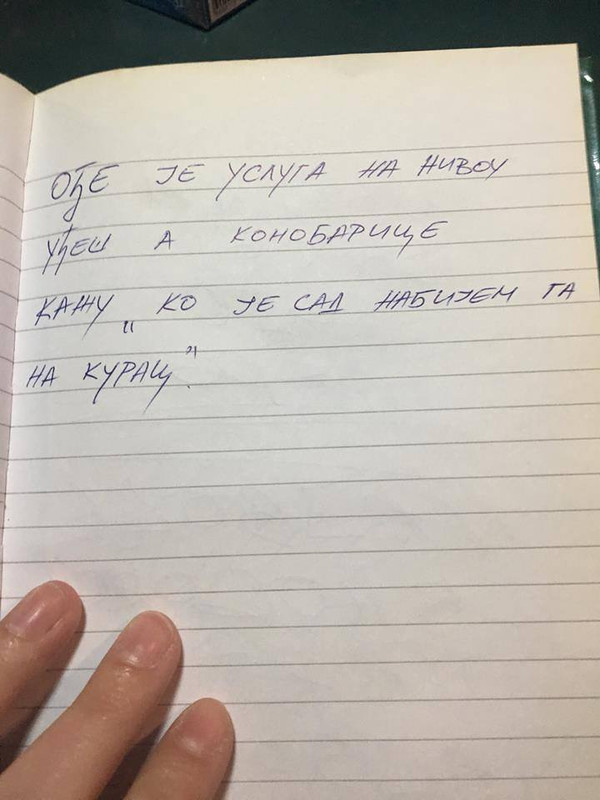 ОЂЕ ЈЕ УСЛУГА НА НИВОУ
УЂЕШ А КОНОБАРИЦЕ
КАЖУ „КО ЈЕ САД НАБИЈЕМ ГА
НА КУРАЦ".